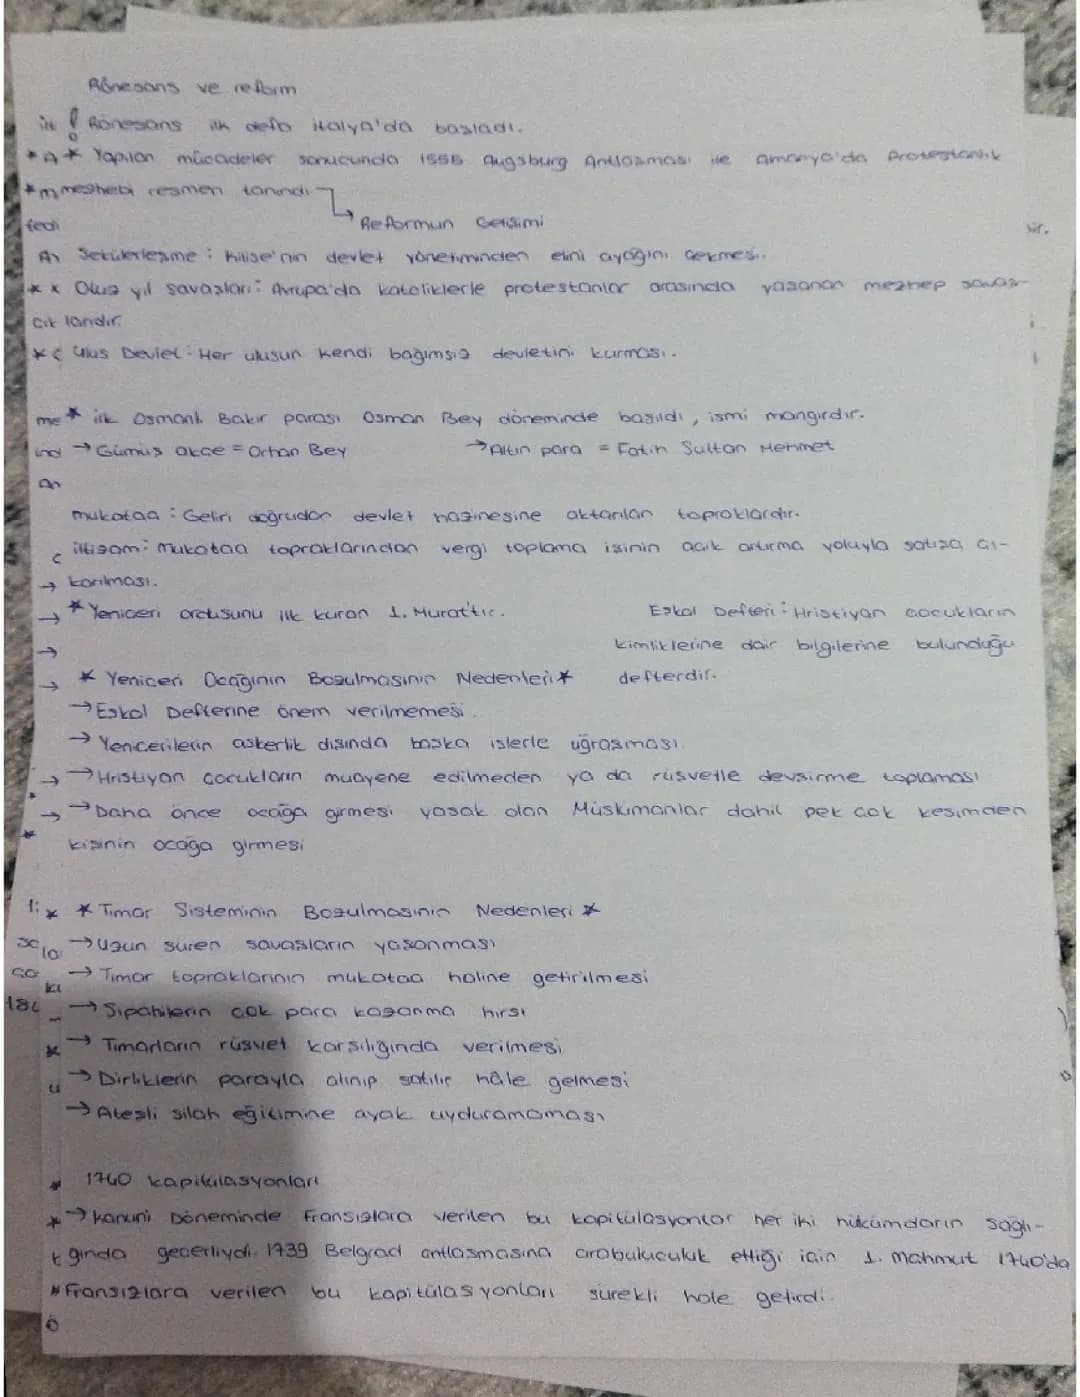 Rönesans ve reform
! Rönesans ilk defa italya'da başladı.
* Yapılan mücadeler sonucunda 1555 Augsburg Antlaşması ile Amanya'da Protestanlık
mezhebi resmen tanındı → Reformun Gelişimi
Sekülerleşme : Kilise'nin devlet yönetiminden elini ayağını çekmesi.
* Otuz yıl savaşları : Avrupa'da katoliklerle protestanlar arasında yaşanan mezhep savaş-
larıdır.
* Ulus Devlet : Her ulusun kendi bağımsız devletini kurması.
* ilk Osmanlı Bakır parası Osman Bey döneminde basıldı, ismi mangırdır.
→ Gümüş akçe = Orhan Bey → Altın para = Fatih Sultan Mehmet
mukataa : Geliri doğrudan devlet hazinesine aktarılan topraklardır.
iltizam : mukataa topraklarından vergi toplama işinin açık artırma yoluyla satışa çı-
karılması.
* Yeniçeri ordusunu ilk kuran 1. Murat'tır.
Eşkal Defteri : Hristiyan çocukların
kimliklerine dair bilgilerine bulunduğu
defterdir.
* Yeniçeri Ocağının Bozulmasının Nedenleri *
→ Eşkal Defterine önem verilmemesi.
→ Yencerilerin askerlik dışında başka işlerle uğraşması
→ Hristiyan çocukların muayene edilmeden ya da rüşvetle devşirme toplaması
→ Daha önce ocağa girmesi yasak olan Müslümanlar dahil pek çok kesimden
kişinin ocağa girmesi
* Tımar Sisteminin Bozulmasının Nedenleri *
→ Uzun süren savaşların yaşanması
→ Tımar topraklarının mukataa haline getirilmesi
→ Sipahilerin çok para kazanma hırsı
→ Tımarların rüşvet karşılığında verilmesi
→ Dirliklerin parayla alınıp satılır hâle gelmesi
→ Ateşli silah eğitimine ayak uyduramaması
1740 kapitülasyonları
→ Kanuni Döneminde Fransızlara verilen bu kapitülasyonlar her iki hükümdarın sağlı-
ğında geçerliydi. 1739 Belgrad antlaşmasına arabuluculuk ettiği için 1. Mahmut 1740'da
Fransızlara verilen bu kapitülasyonları sürekli hale getirdi.